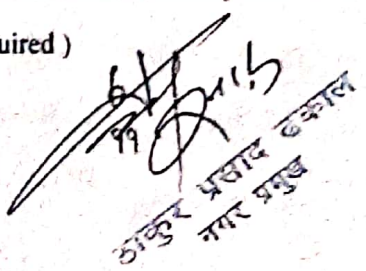 uired )
ठाकुर प्रसाद ढकाल
नगर प्रमुख